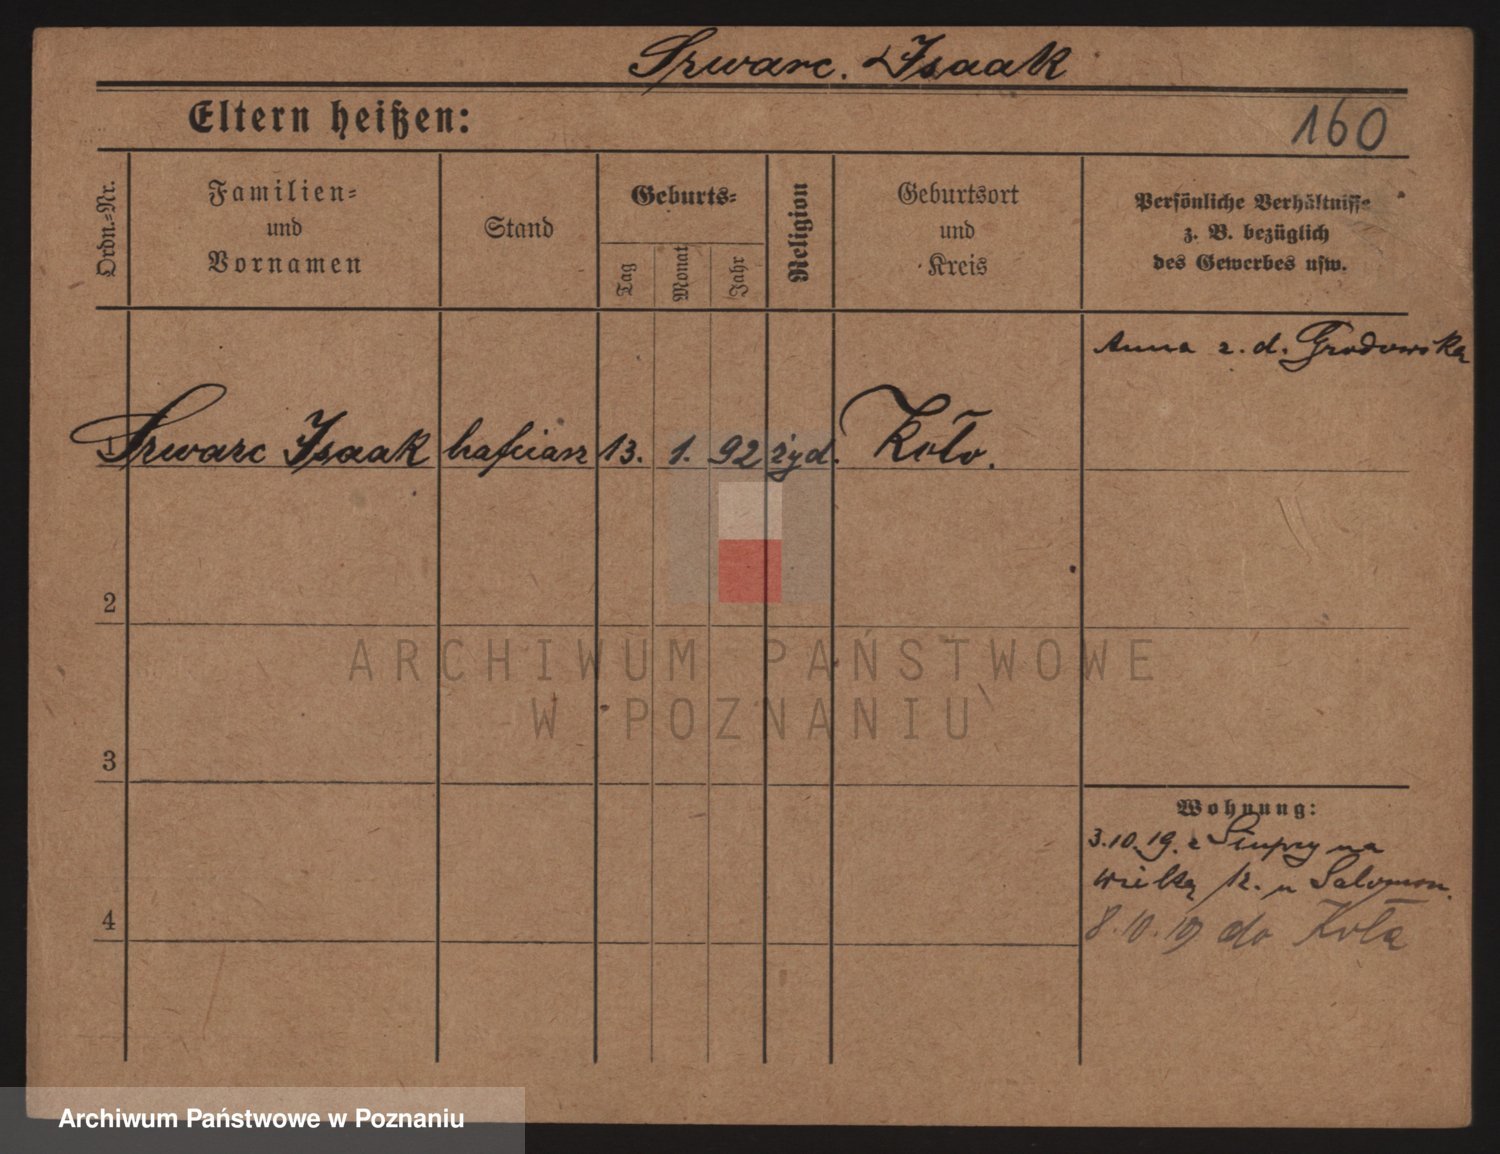 Szwarc. Isaak
Eltern heißen:
160
Ordn.=Nr.
Familien=
und
Vornamen
Stand
Geburts=
Tag
Monat
Jahr
Religion
Geburtsort
und
Kreis
Persönliche Verhältnisse
z. B. bezüglich
des Gewerbes usw.
Anna z. d. Grodowska
Szwarc Isaak hafciarz 13. 1. 92 żyd. Koło.
2
3
4
Wohnung:
3.10.19. z Słupcy na
wielką 12. u Salomon.
8.10.19 do Koła
ARCHIWUM PAŃSTWOWE
W POZNANIU
Archiwum Państwowe w Poznaniu